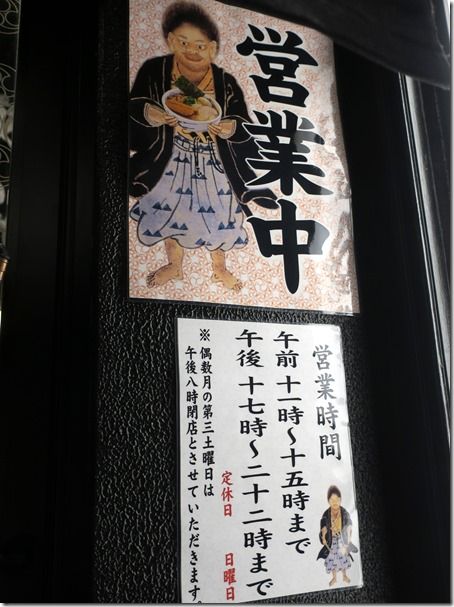 営業中
営業時間
午前 十一時〜十五時まで
午後 十七時〜二十二時まで
定休日 日曜日
※偶数月の第三土曜日は
午後八時閉店とさせていただきます。